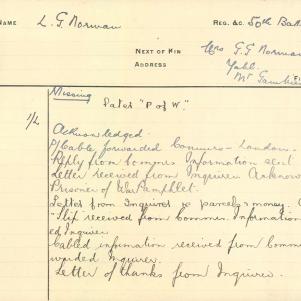 NAME L. G. Norman REG. &C. 50th Batt
NEXT OF KIN Mrs G. G. Norman
ADDRESS
Mt Gambier
Missing
Later "P of W".
Acknowledged.
Cable forwarded Commrs - London.
Reply from Commrs Information sent
Letter received from Inquirer Acknow
Prisoner of War Pamphlet.
Letter from Inquirer re parcels & money.
"Slip received from Commrs. Information
ed Inquirer
Cabled information received from Comm
warded Inquirer.
Letter of thanks from Inquirer.